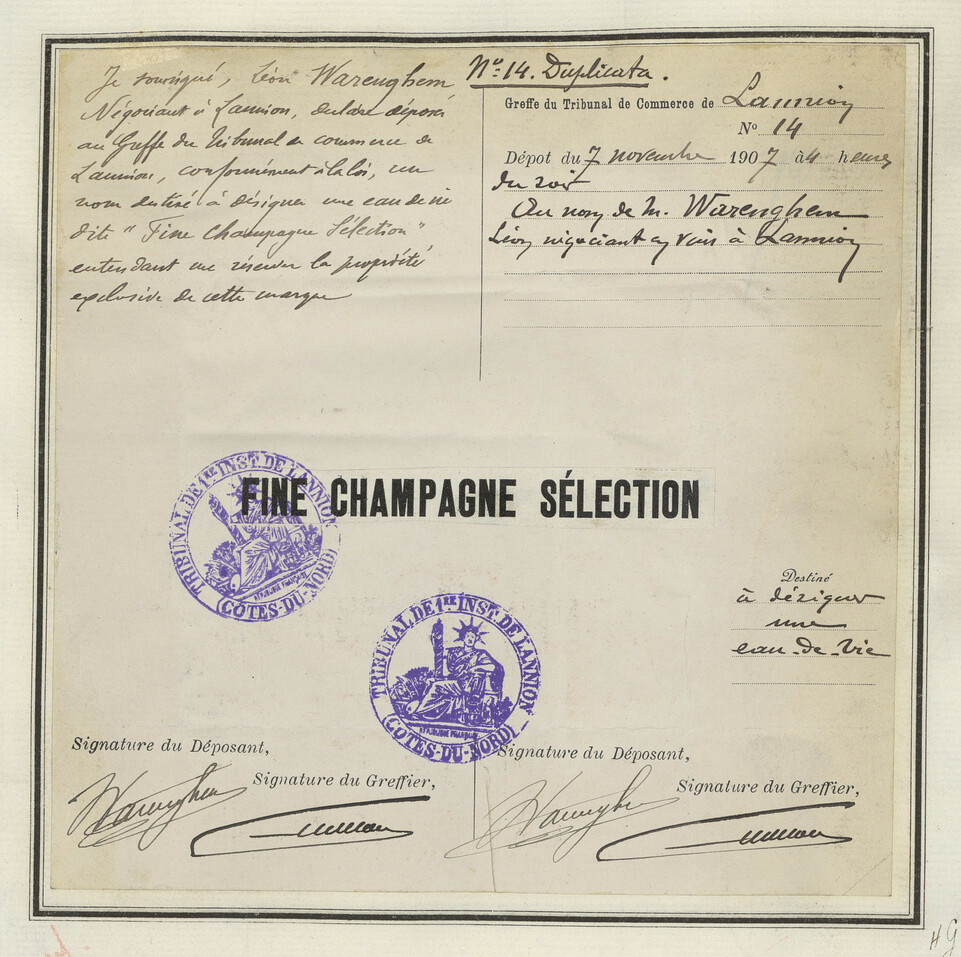 Je soussigné, Léon Warenghem
Négociant à Lannion, déclare déposer
au Greffe du Tribunal de commerce de
Lannion, conformément à la loi, un
nom destiné à désigner une eau de vie
dite " Fine Champagne Sélection "
entendant me réserver la propriété
exclusive de cette marque
No 14. Duplicata.
Greffe du Tribunal de Commerce de Lannion
No 14
Dépot du 7 novembre 1907 à 4 heures
du soir
Au nom de M. Warenghem
Léon négociant en vins à Lannion
FINE CHAMPAGNE SÉLECTION
TRIBUNAL DE 1RE INST. DE LANNION
RÉPUBLIQUE FRANÇAISE
(CÔTES-DU-NORD)
Destiné
à désigner
une
eau-de-vie
TRIBUNAL DE 1RE INST. DE LANNION
RÉPUBLIQUE FRANÇAISE
(CÔTES-DU-NORD)
Signature du Déposant,
Signature du Greffier,
Warenghem
Signature du Déposant,
Signature du Greffier,
Warenghem
HG